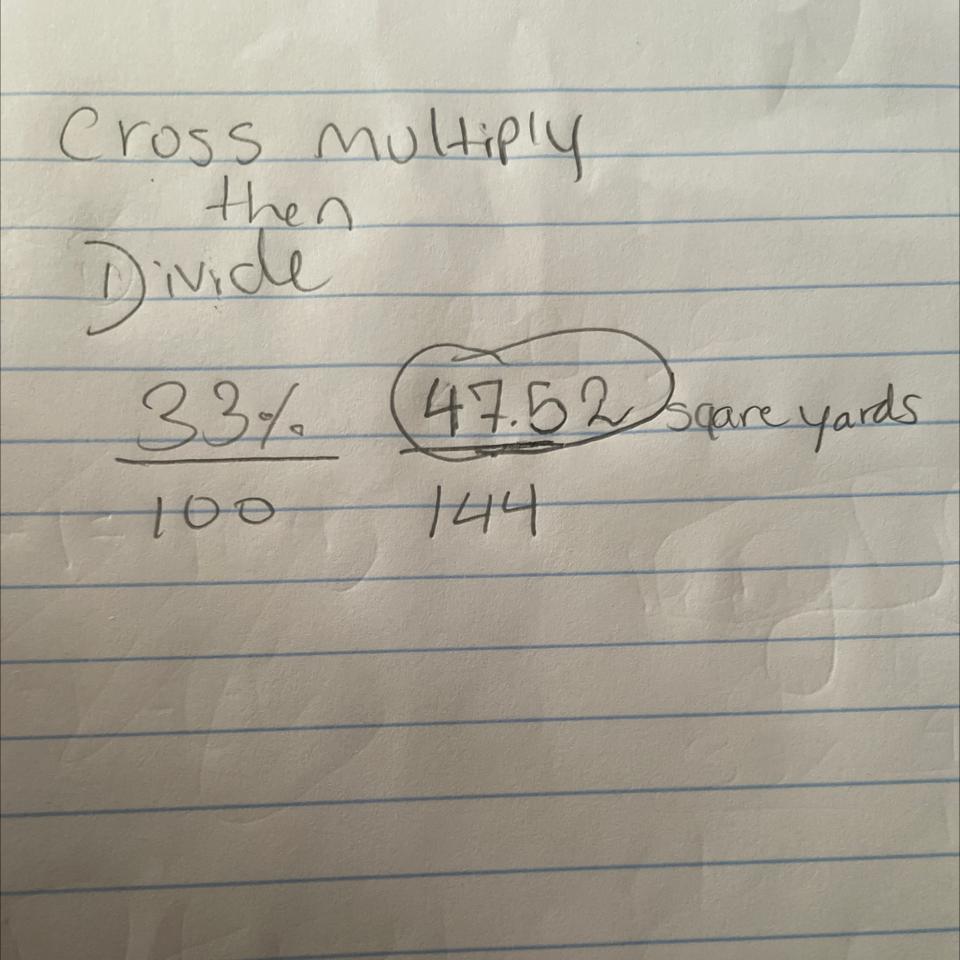 Cross multiply
then
Divide
33% 47.52 sqare yards
100 144